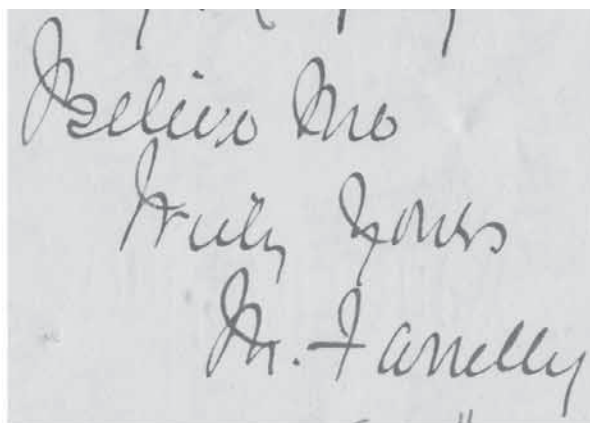 Believe Me
Truly Yours
M. Farrelly